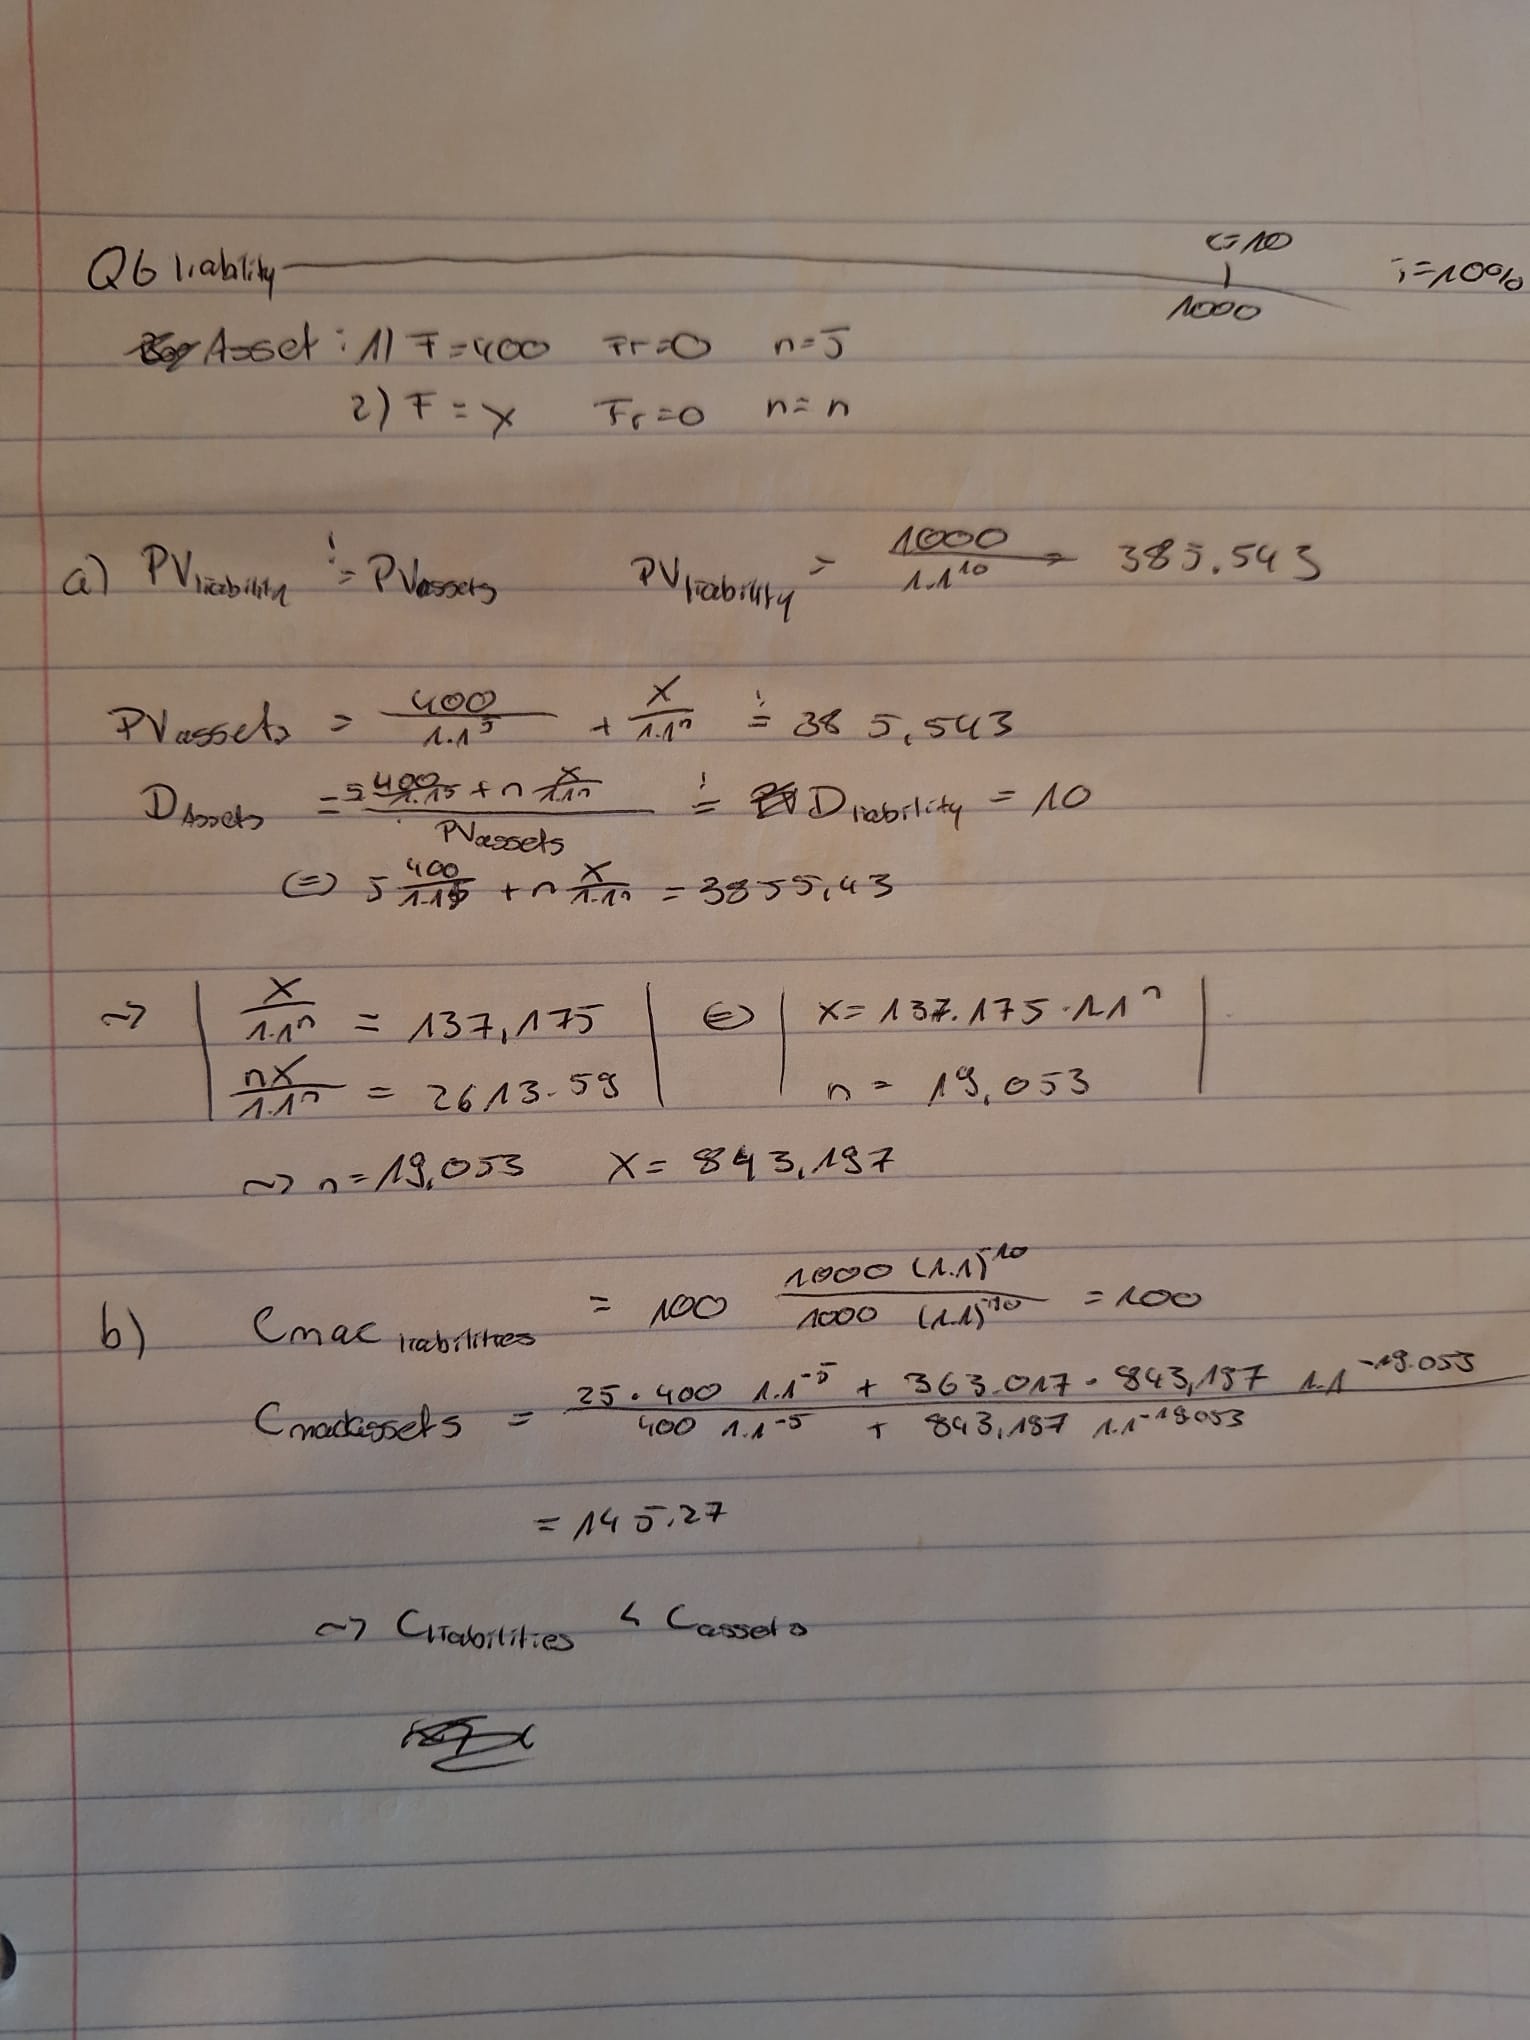 Q6 liability t=10 i=10%
1000
Asset: 1) F=400 Fr=0 n=5
2) F=x Fr=0 n=n
a) PV liability != PV assets PV liability = 1000 / 1.1^10 = 385.543
PV assets = 400 / 1.1^5 + x / 1.1^n != 385,543
D Assets = (5 400/1.1^5 + n x/1.1^n) / PV assets != D liability = 10
<=> 5 400/1.1^5 + n x/1.1^n = 3855,43
~> | x/1.1^n = 137,175 | <=> | x = 137.175 · 1.1^n |
| nx/1.1^n = 2613.59 | | n = 19,053 |
~> n = 19,053 x = 843,197
b) Cmac liabilities = 100 1000 (1.1)^-10 / 1000 (1.1)^-10 = 100
Cmac assets = (25 · 400 1.1^-5 + 363.017 · 843,197 1.1^-19.053) / (400 1.1^-5 + 843,197 1.1^-19.053)
= 145.27
~> C liabilities < C assets